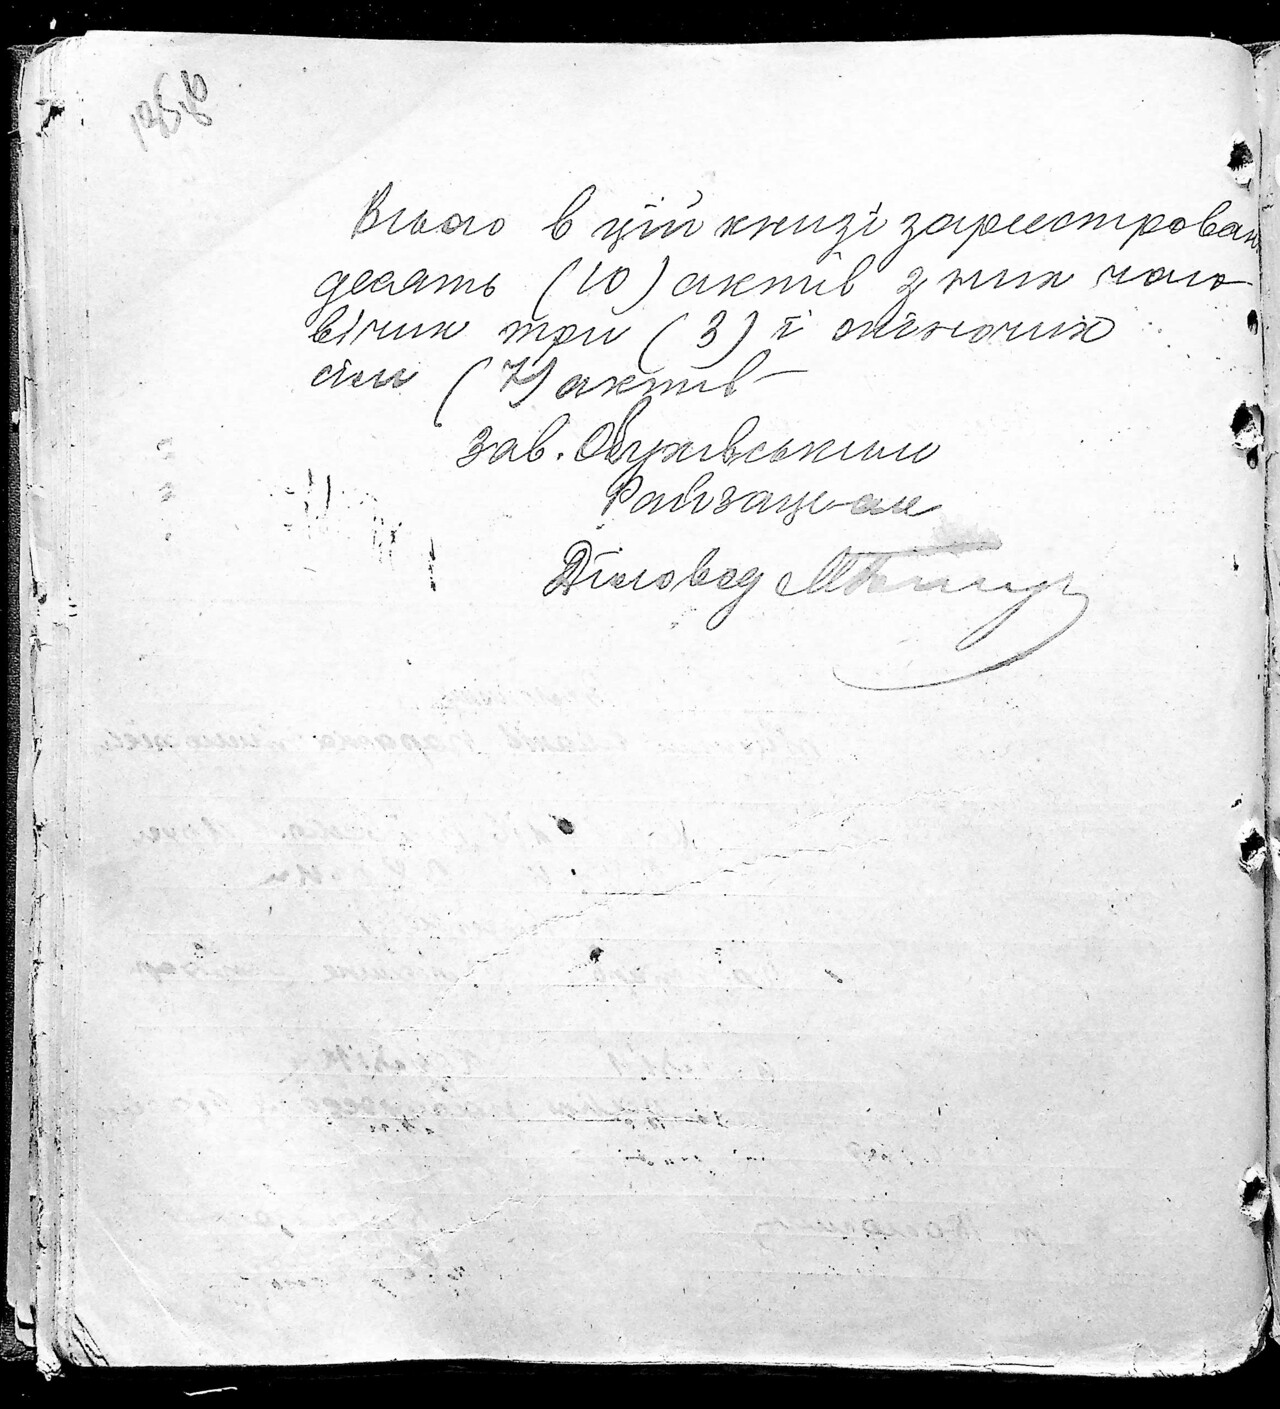 Всього в цій книзі зареєстрован
десять (10) актів з них чоло-
вічих три (3) і жіночих
сім (7) актів
Зав. Обухівським
Райзагсом
Діловод